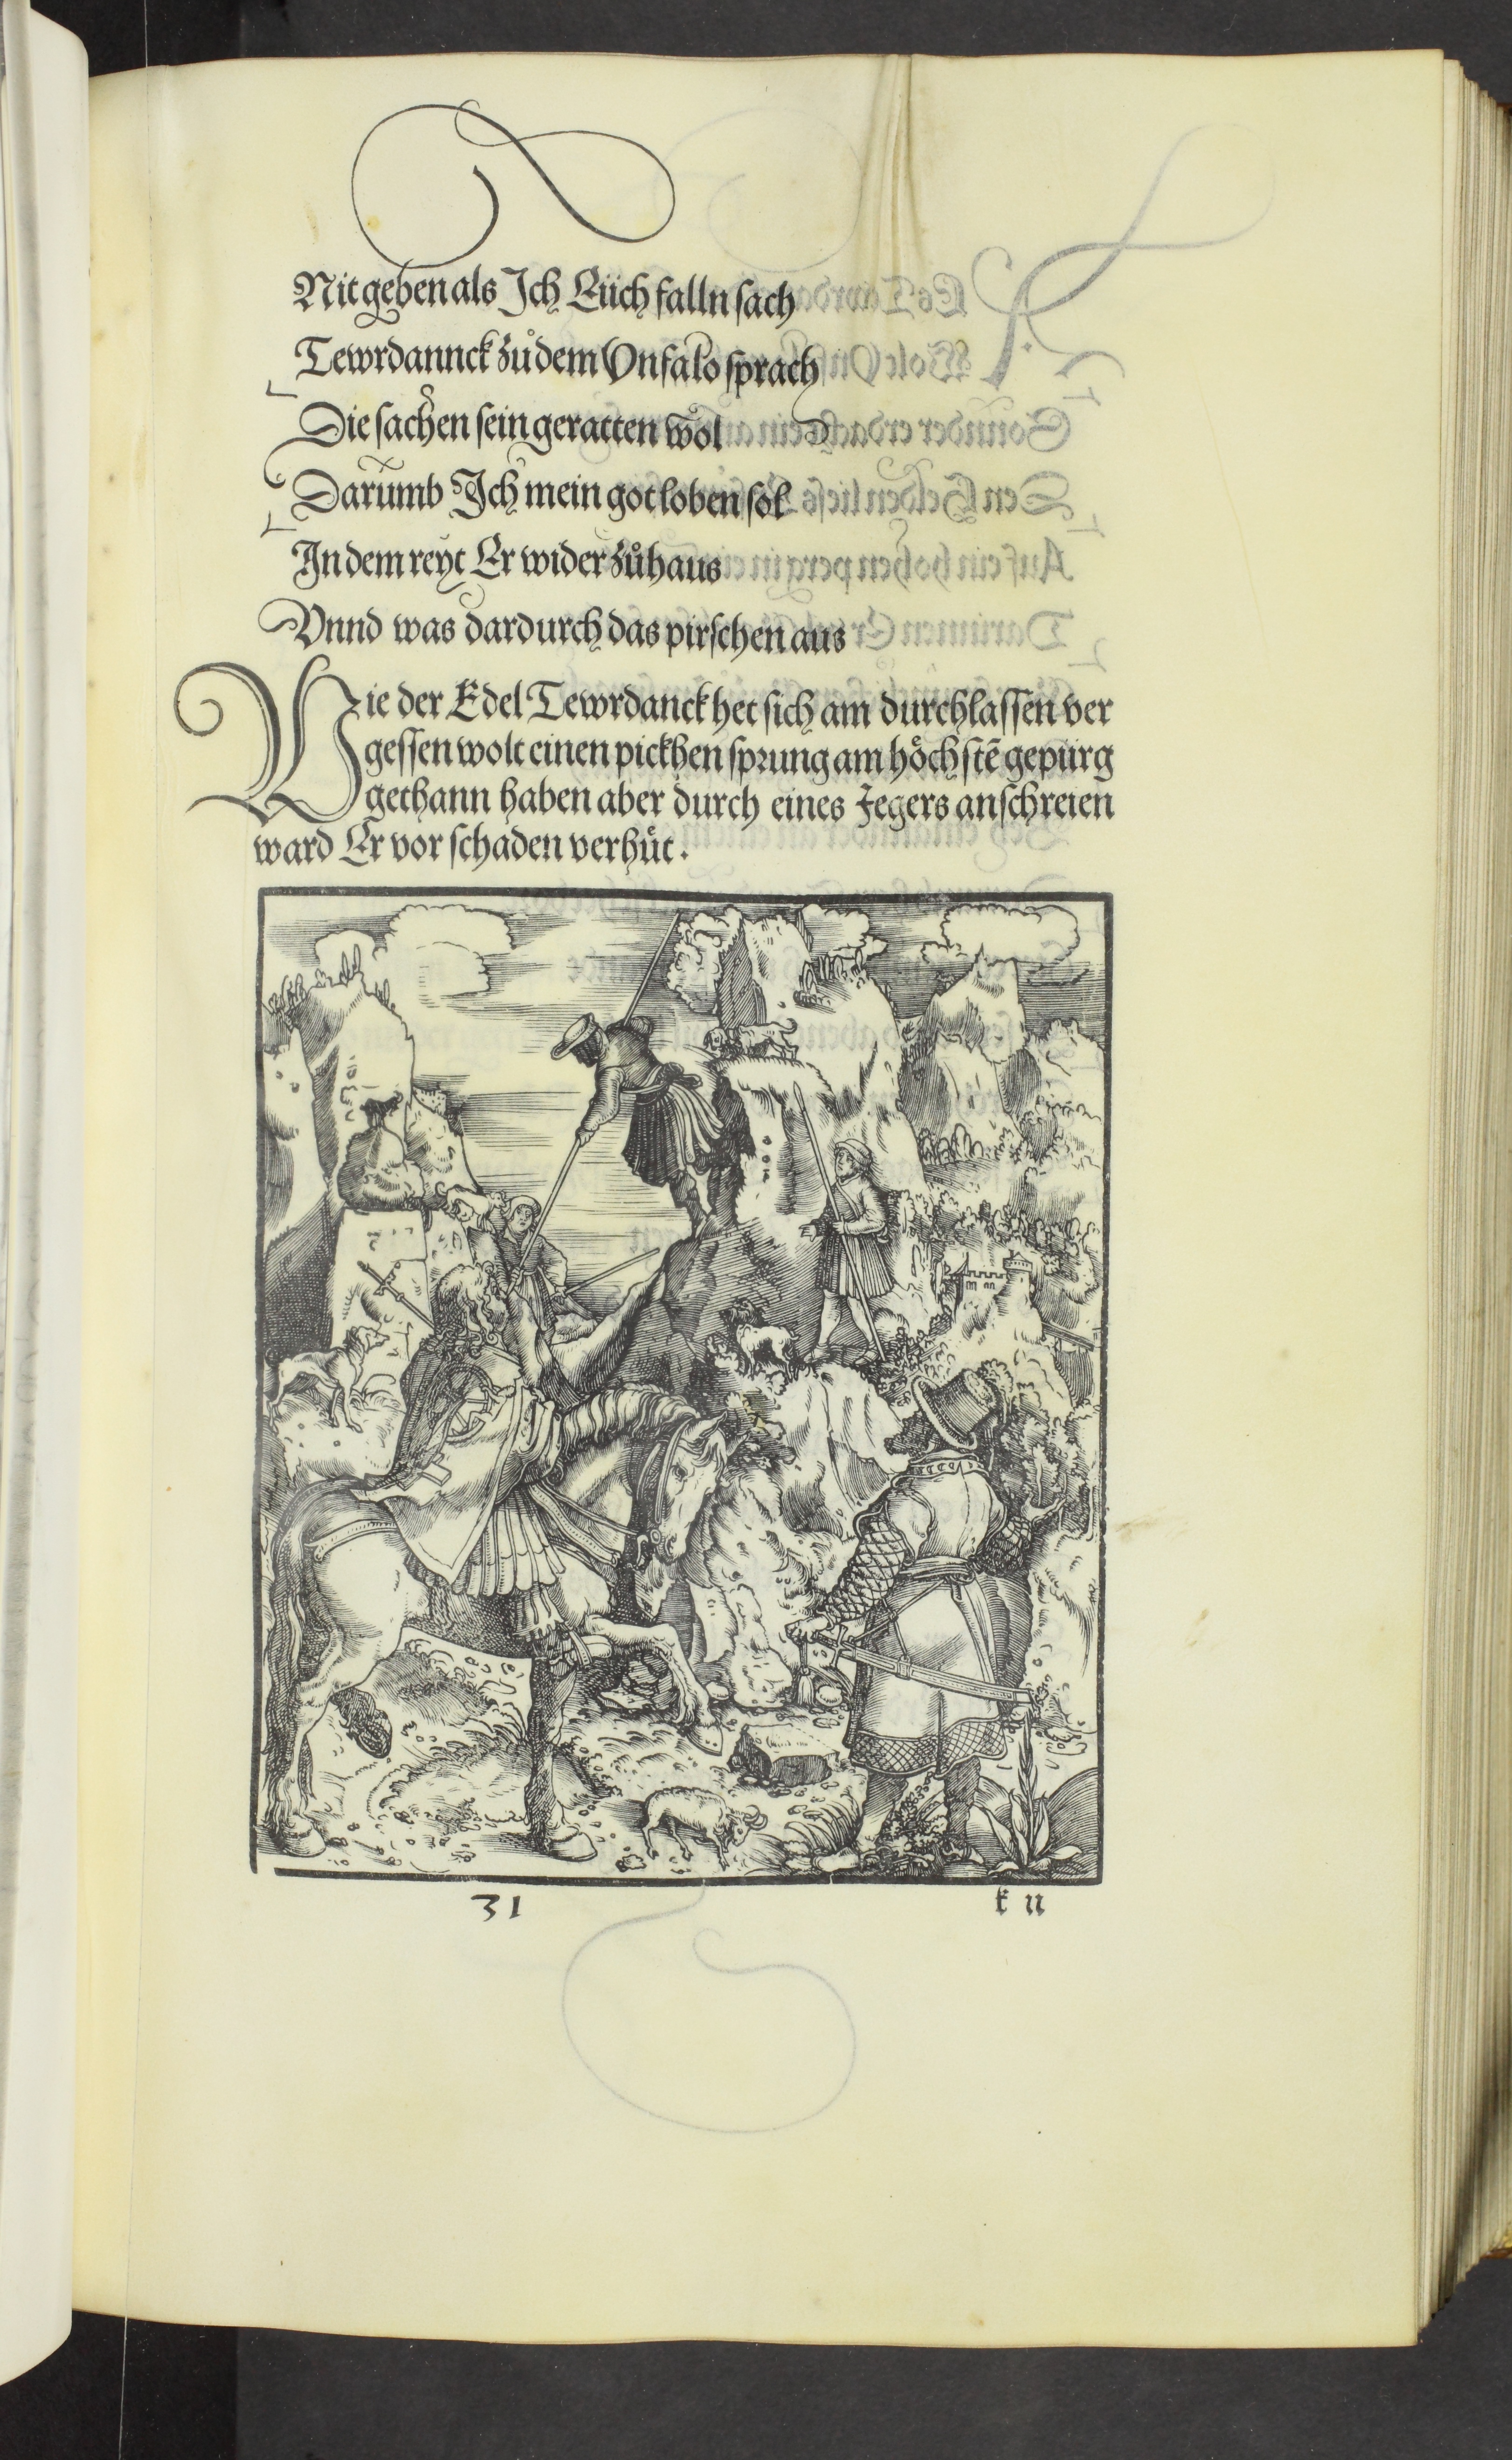 Nit geben als Ich Euch falln sach
Tewrdannck zůdem Vnfalo sprach
Die sachen sein geratten wol
Darumb Ich mein got loben sol
In dem reyt Er wider zůhaus
Vnnd was dardurch das pirschen aus
Wie der Edel Tewrdanck het sich am durchlassen ver
gessen wolt einen pickhen sprung am höchstē gepürg
gethann haben aber durch eines Jegers anschreien
ward Er vor schaden verhüt.
31
k ii